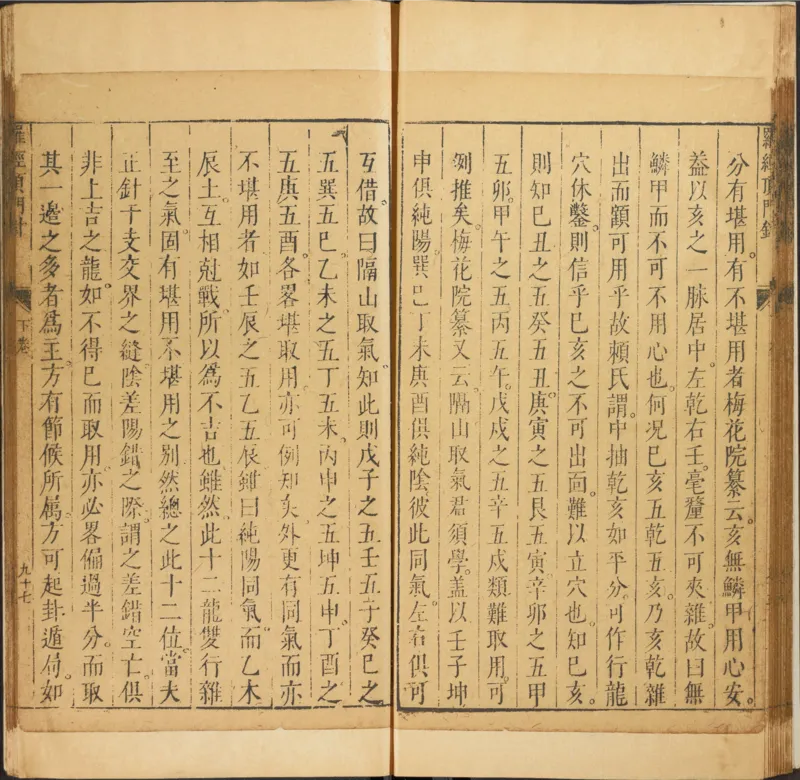 羅經頂門針
分有堪用。有不堪用者梅花院纂云。亥無鱗甲用心安。
益以亥之一脉居中。左乾右壬。毫釐不可夾雜。故曰無
鱗甲而不可不用心也。何况巳亥五乾五亥。乃亥乾雜
出而顧可用乎。故賴氏謂。中抽乾亥如平分。可作行龍
穴休鑿。則信乎巳亥之不可出面。難以立穴也。知巳亥。
則知巳丑之五癸五丑。庚寅之五艮五寅。辛卯之五甲
五卯。甲午之五丙五午。戊戌之五辛五戌類難取用。可
例推矣。梅花院纂又云。隔山取氣君須學。盖以壬子坤
申俱純陽。巽巳丁未庚酉俱純陰。彼此同氣。左右俱可
互借。故曰隔山取氣。知此則戊子之五壬五子癸巳之
五巽五巳。乙未之五丁五未。丙申之五坤五申。丁酉之
五庚五酉。各畧堪取用。亦可例知矣。外更有同氣而亦
不堪用者如壬辰之五乙五辰。雖曰純陽同氣。而乙木
辰土。互相尅戰。所以為不吉也。雖然。此十二龍雙行雜
至之氣。固有堪用不堪用之别。然總之此十二位。當夫
正針干支交界之縫。陰差陽錯之際。謂之差錯空亡。俱
非上吉之龍。如不得巳而取用。亦必畧偏過半分。而取
其一邊之多者為主。方有節候所属。方可起卦遁局。如
羅經頂門針
下卷
九十七